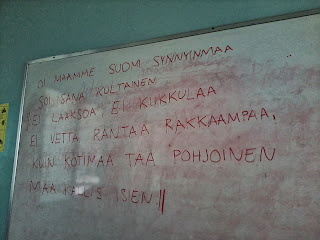 OI MAAMME SUOMI SYNNYINMAA
SOI SANA KULTAINEN
EI LAAKSOA, EI KUKKULAA
EI VETTÄ RANTAA RAKKAAMPAA,
KUIN KOTIMAA TÄÄ POHJOINEN
MAA KALLIS ISIEN!